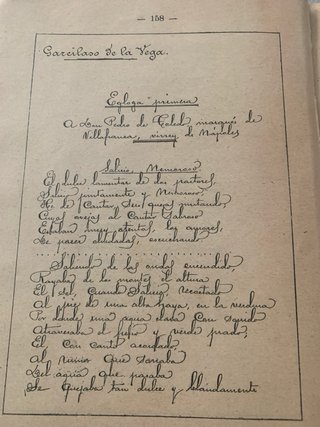 — 158 —
Garcilaso de la Vega.
Egloga primera
A Don Pedro de Toled marqués de
Villafranca, virrey de Nápoles
Salicio, Nemoroso
El dulce lamentar de dos pastores,
Salicio juntamente y Nemoroso,
He de Cantar, sus quejas imitando;
Cuyas ovejas al Cantar Sabroso
Estaban muy atentas, los amores,
De pacer olvidadas, escuchando.
Saliendo de las ondas encendido,
Rayaba de los montes el altura
El sol, cuando Salicio recostado
Al pie de una alta haya, en la verdura
Por donde una agua clara con sonido
Atravesaba el fresco y verde prado;
El con canto acordado
Al rumor que sonaba
Del agua que pasaba
Se quejaba tan dulce y blandamente